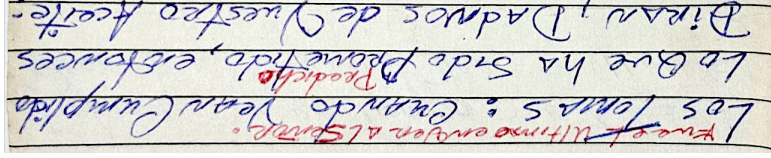 Fue el Ultimo en Ver al Señor.
Los Tomas: Cuando Vean Cumplido
Predicho
Lo Que ha Sido Prometido, entonces
Diran, Dadnos de Vuestro Aceite.